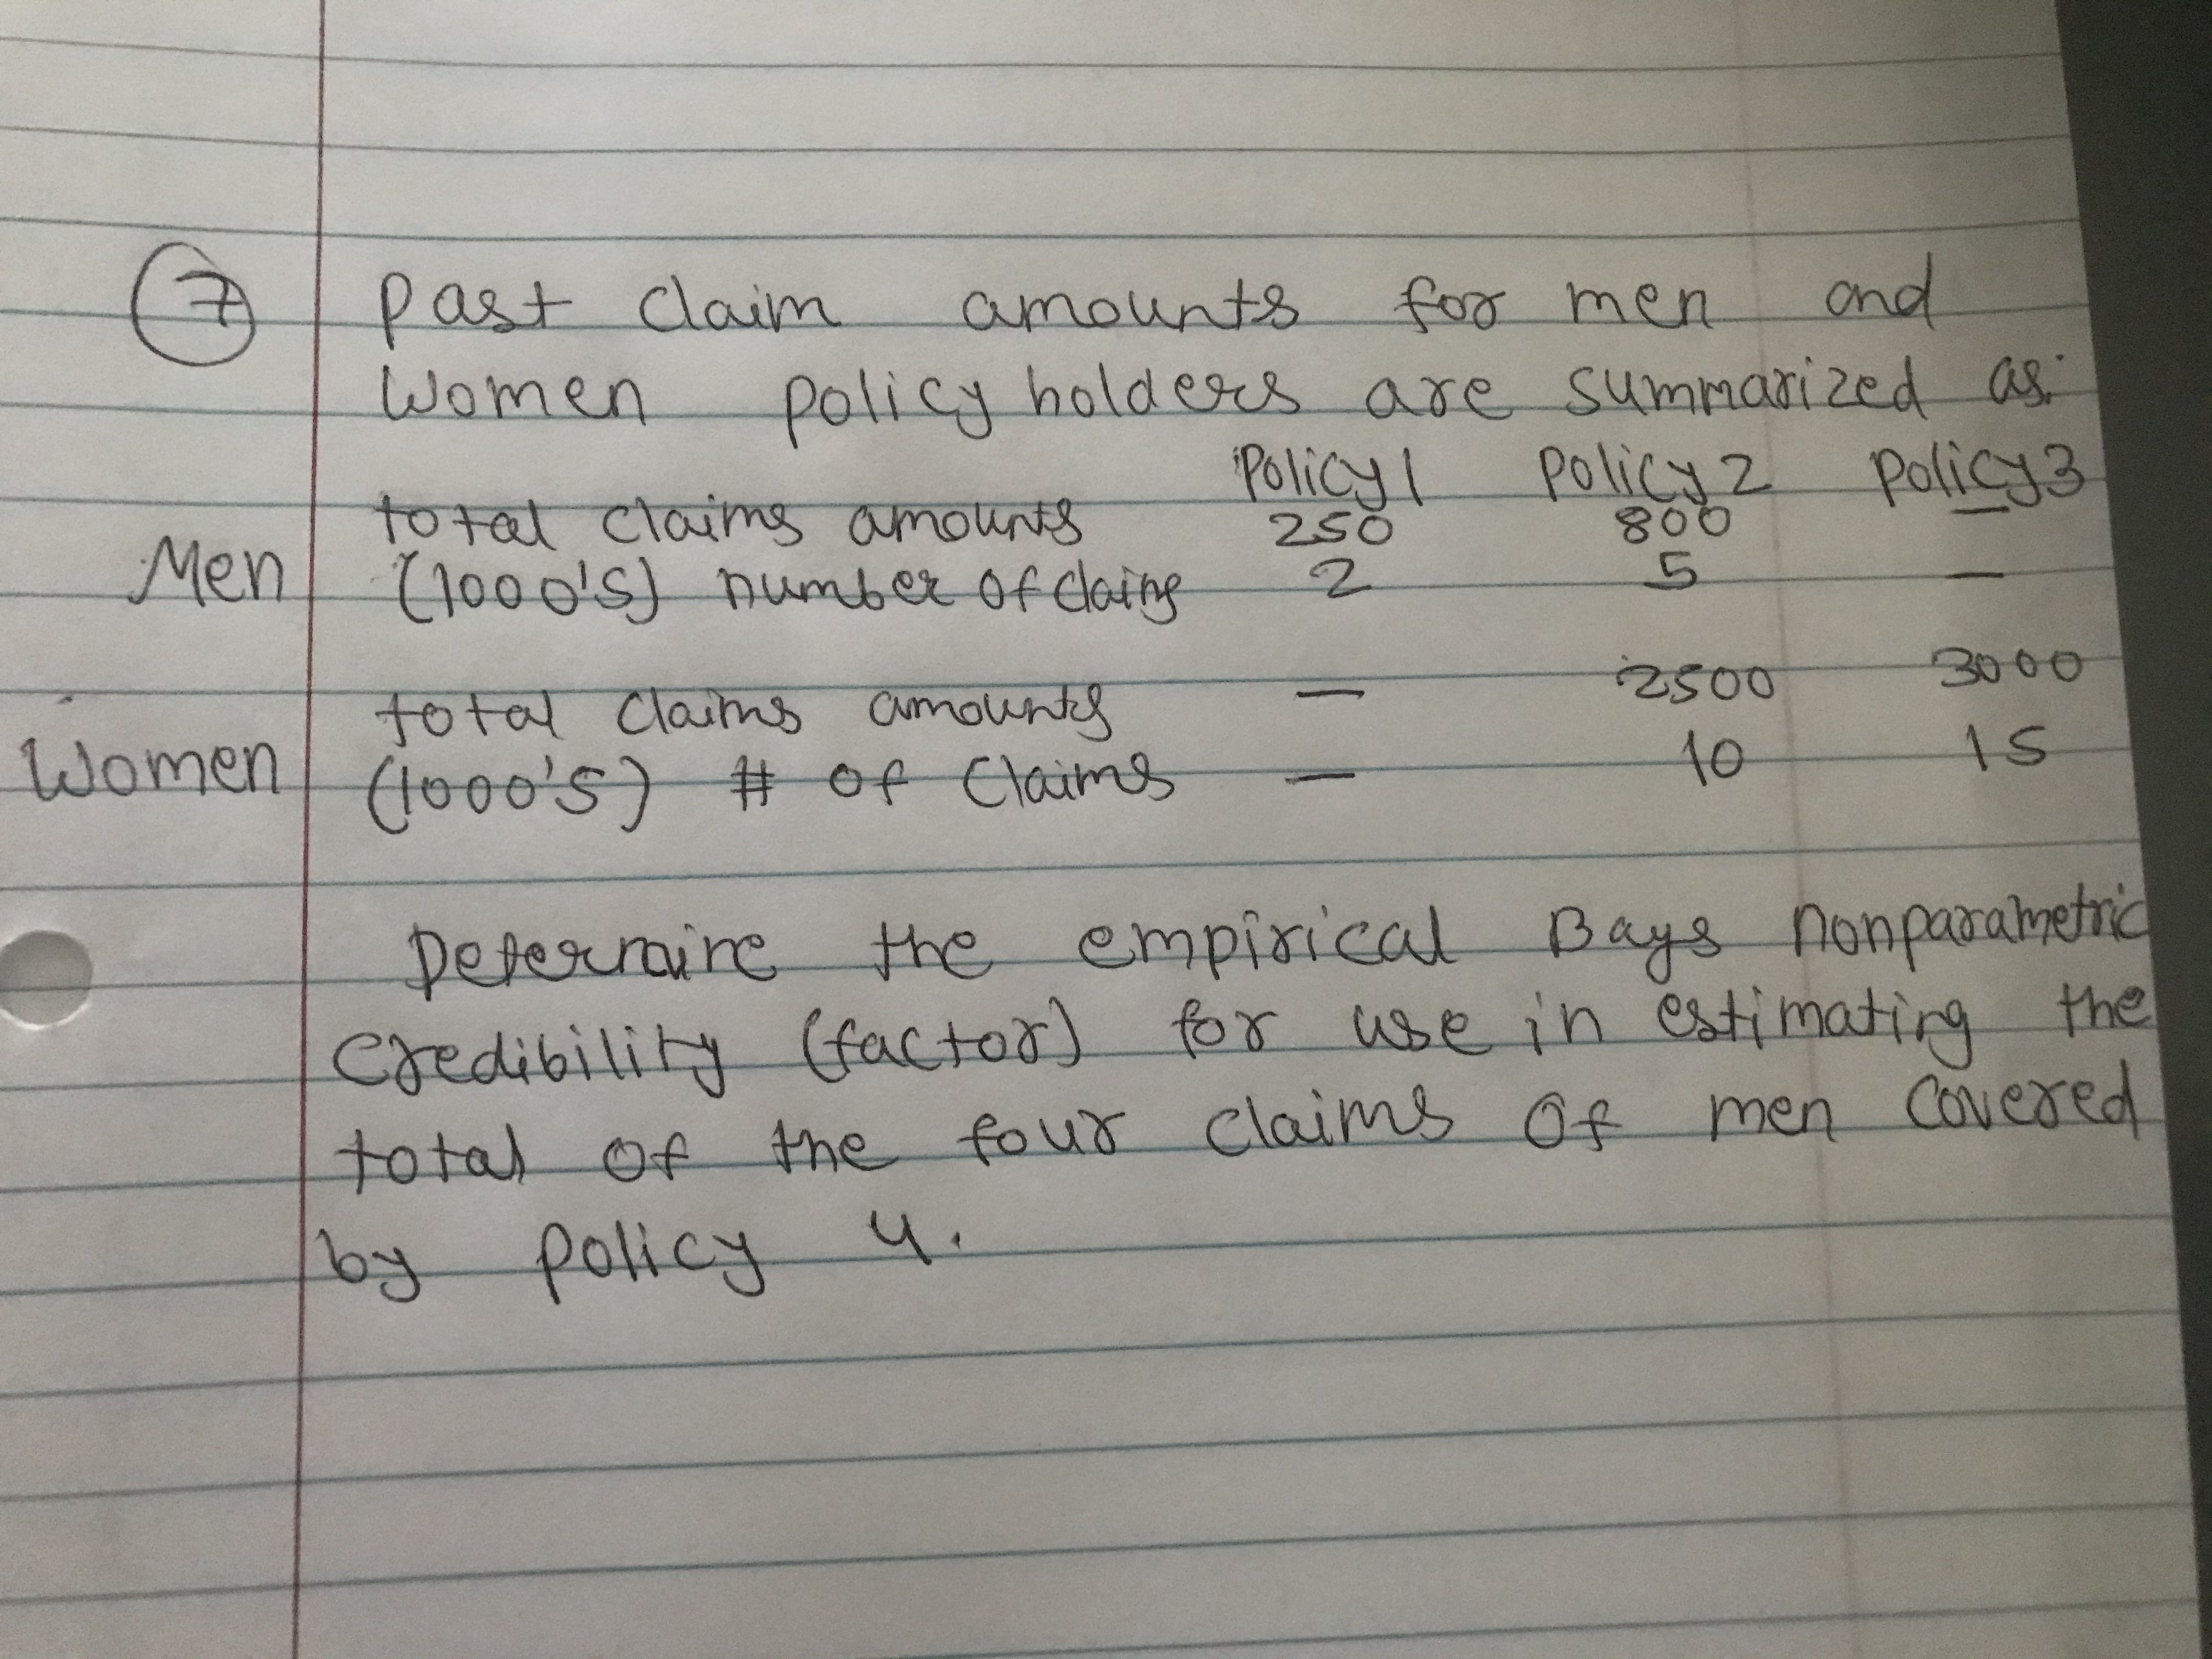 7 Past claim amounts for men and
Women policy holders are summarized as:
Policy 1 Policy 2 Policy 3
total claims amounts 250 800 —
Men (1000's) number of claims 2 5 —
total claims amounts — 2500 3000
Women (1000's) # of Claims — 10 15
Determine the empirical Bays nonparametric
Credibility (factor) for use in estimating the
total of the four claims of men covered
by policy 4.